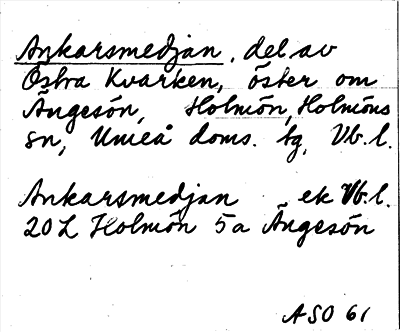 Ankarsmedjan, del av
Östra Kvarken, öster om
Ängesön, Holmön, Holmöns
sn, Umeå doms. tg, Vb. l.
Ankarsmedjan ek Vb. l.
20 L Holmön 5a Ängesön
ASO 61